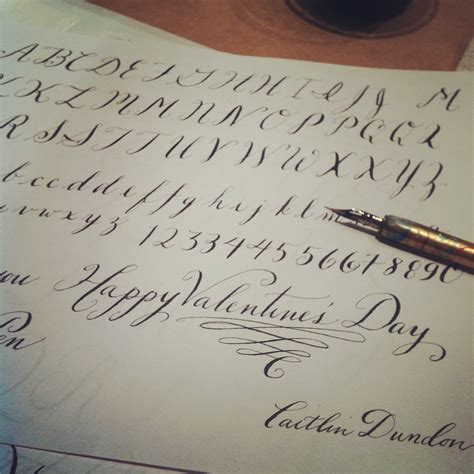 A B C D E F G H H I J J M
K L M M N N O P P Q Q R
R S S T T U V W X X Y Z
b c c d d e f f g h i j k l m
u v w x y z
1 2 3 3 4 4 5 5 6 6 7 8 8 9 0
you Happy Valentine's Day
Pen
Caitlin Dundon